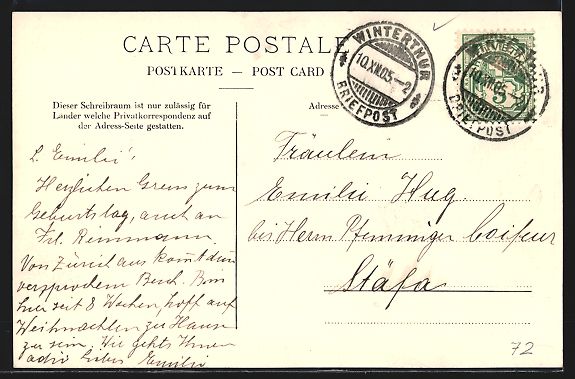 CARTE POSTALE
POSTKARTE — POST CARD
WINTERTHUR
10.XII.05.–2
BRIEFPOST
Dieser Schreibraum ist nur zulässig für
Länder welche Privatkorrespondenz auf
der Adress-Seite gestatten.
Adresse
5
WINTERTHUR
BRIEFPOST
L. Emilie!
Herzlichen Gruss zum
Geburtstag, auch an
Frl. Reimmann.
Von Zürich aus komt dein
versprochem Besch. Bin
hier seit 8 Wochen, hoff auf
Weihnachten zu Hause
zu sein. Wie gehts Ihnen
adio Emilie
Fräulein
Emilie Hug
bei Herrn Pfenninger Coifeur
Stäfa
72